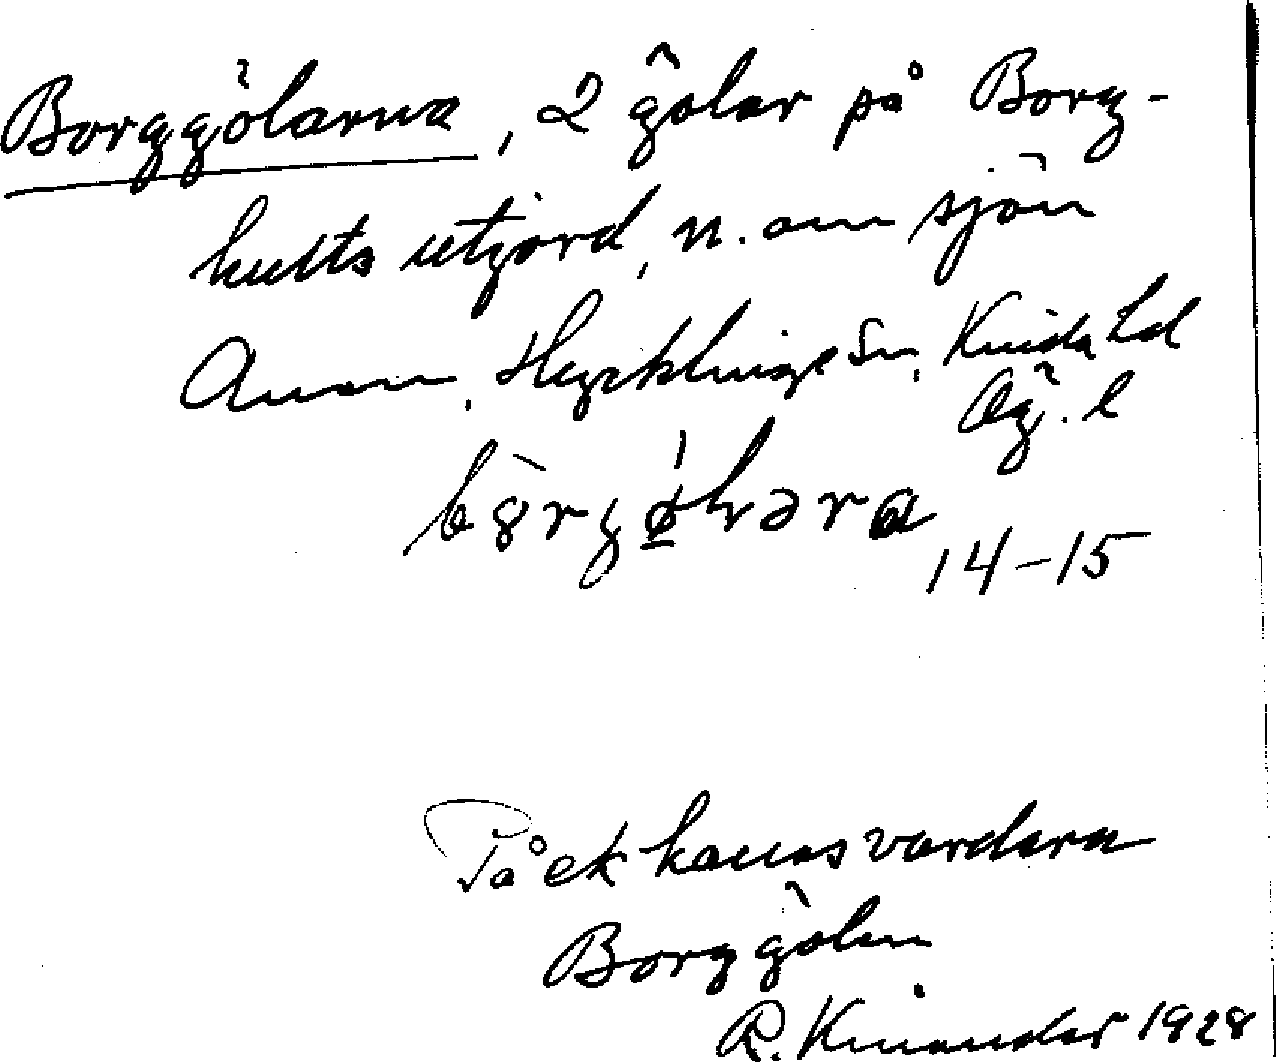 Borggölarna, 2 gölar på Borg-
hults utjord, n. om sjön
Ånen, Hycklinge sn, Kinda hd
Ög. l
14-15
På ek hans vardera
Borggölen
R. Kinander 1928